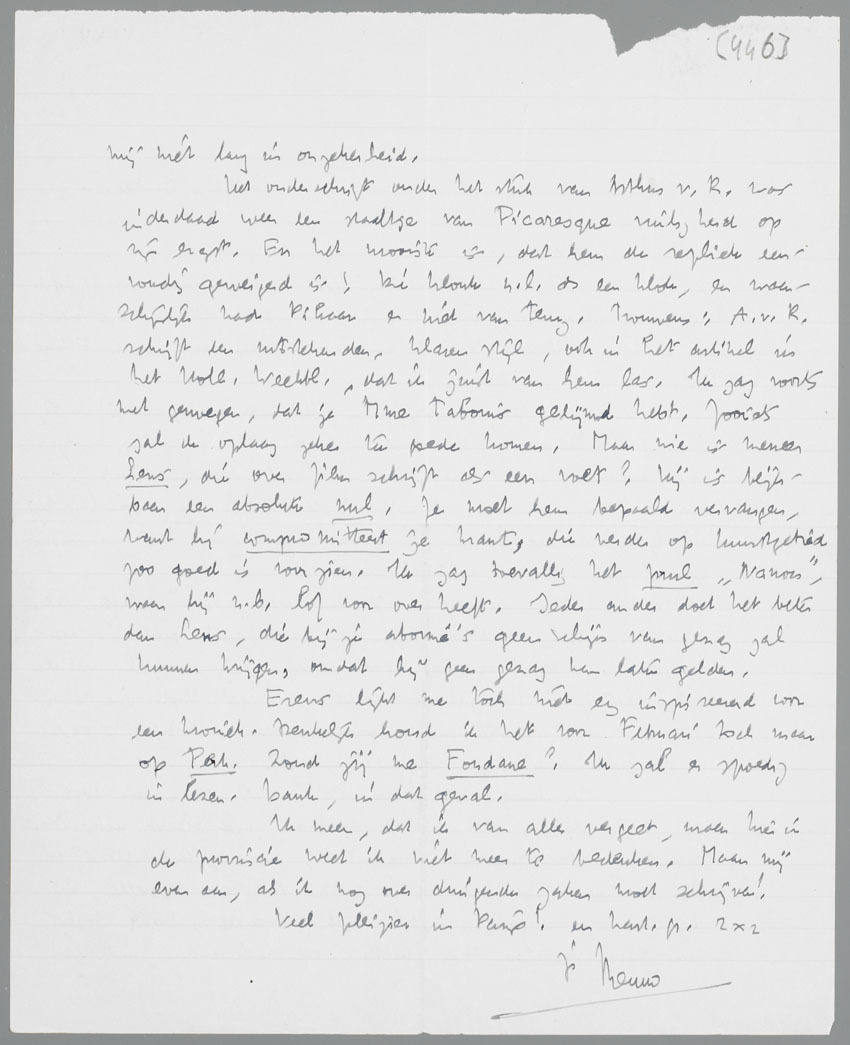 (446)
mij niet lang in onzekerheid.
Het onderschrift onder het stuk van Arthur v. R. was
inderdaad weer een staaltje van Picaresque nuttigheid op
zijn ergst. En het mooiste is, dat hem de repliek een-
voudig geweigerd is! Die klonk n.l. als een klok, en waar-
schijnlijk had Pikaar er niet van terug. Trouwens: A.v.R.
schrijft een uitstekenden, klaren stijl, ook in het artikel in
het Holl. Weekbl., dat ik juist van hem las. Ik zag voorts
met genoegen, dat je Mme Tabouis gelijmd hebt. Zooiets
zal de oplaag zeker ten goede komen. Maar wie is meneer
Lens, die over film schrijft als een vod? Hij is blijk-
baar een absolute nul. Je moet hem bepaald vervangen,
want hij compromitteert je krant, die verder op kunstgebied
zoo goed is voorzien. Ik zag toevallig het prul „Nanon",
waar hij n.b. lof voor over heeft. Ieder ander doet het beter
dan Lens, die bij je abonné's geen van gezag zal
kunnen krijgen, omdat hij geen gezag kan laten gelden.
Erens lijkt me toch niet erg inspireerend voor
een kroniek. Denkelijk houd ik het voor Februari toch maar
op Perk. Zond jij me Fondane? Ik zal er spoedig
in lezen. Dank, in dat geval.
Ik meen, dat ik van alles vergeet, maar hier in
de provincie weet ik niet meer te bedenken. Maan mij
even aan, als ik nog over dringende zaken moet schrijven!
Veel plezier in Parijs! en hart. gr. 2x2
je Menno